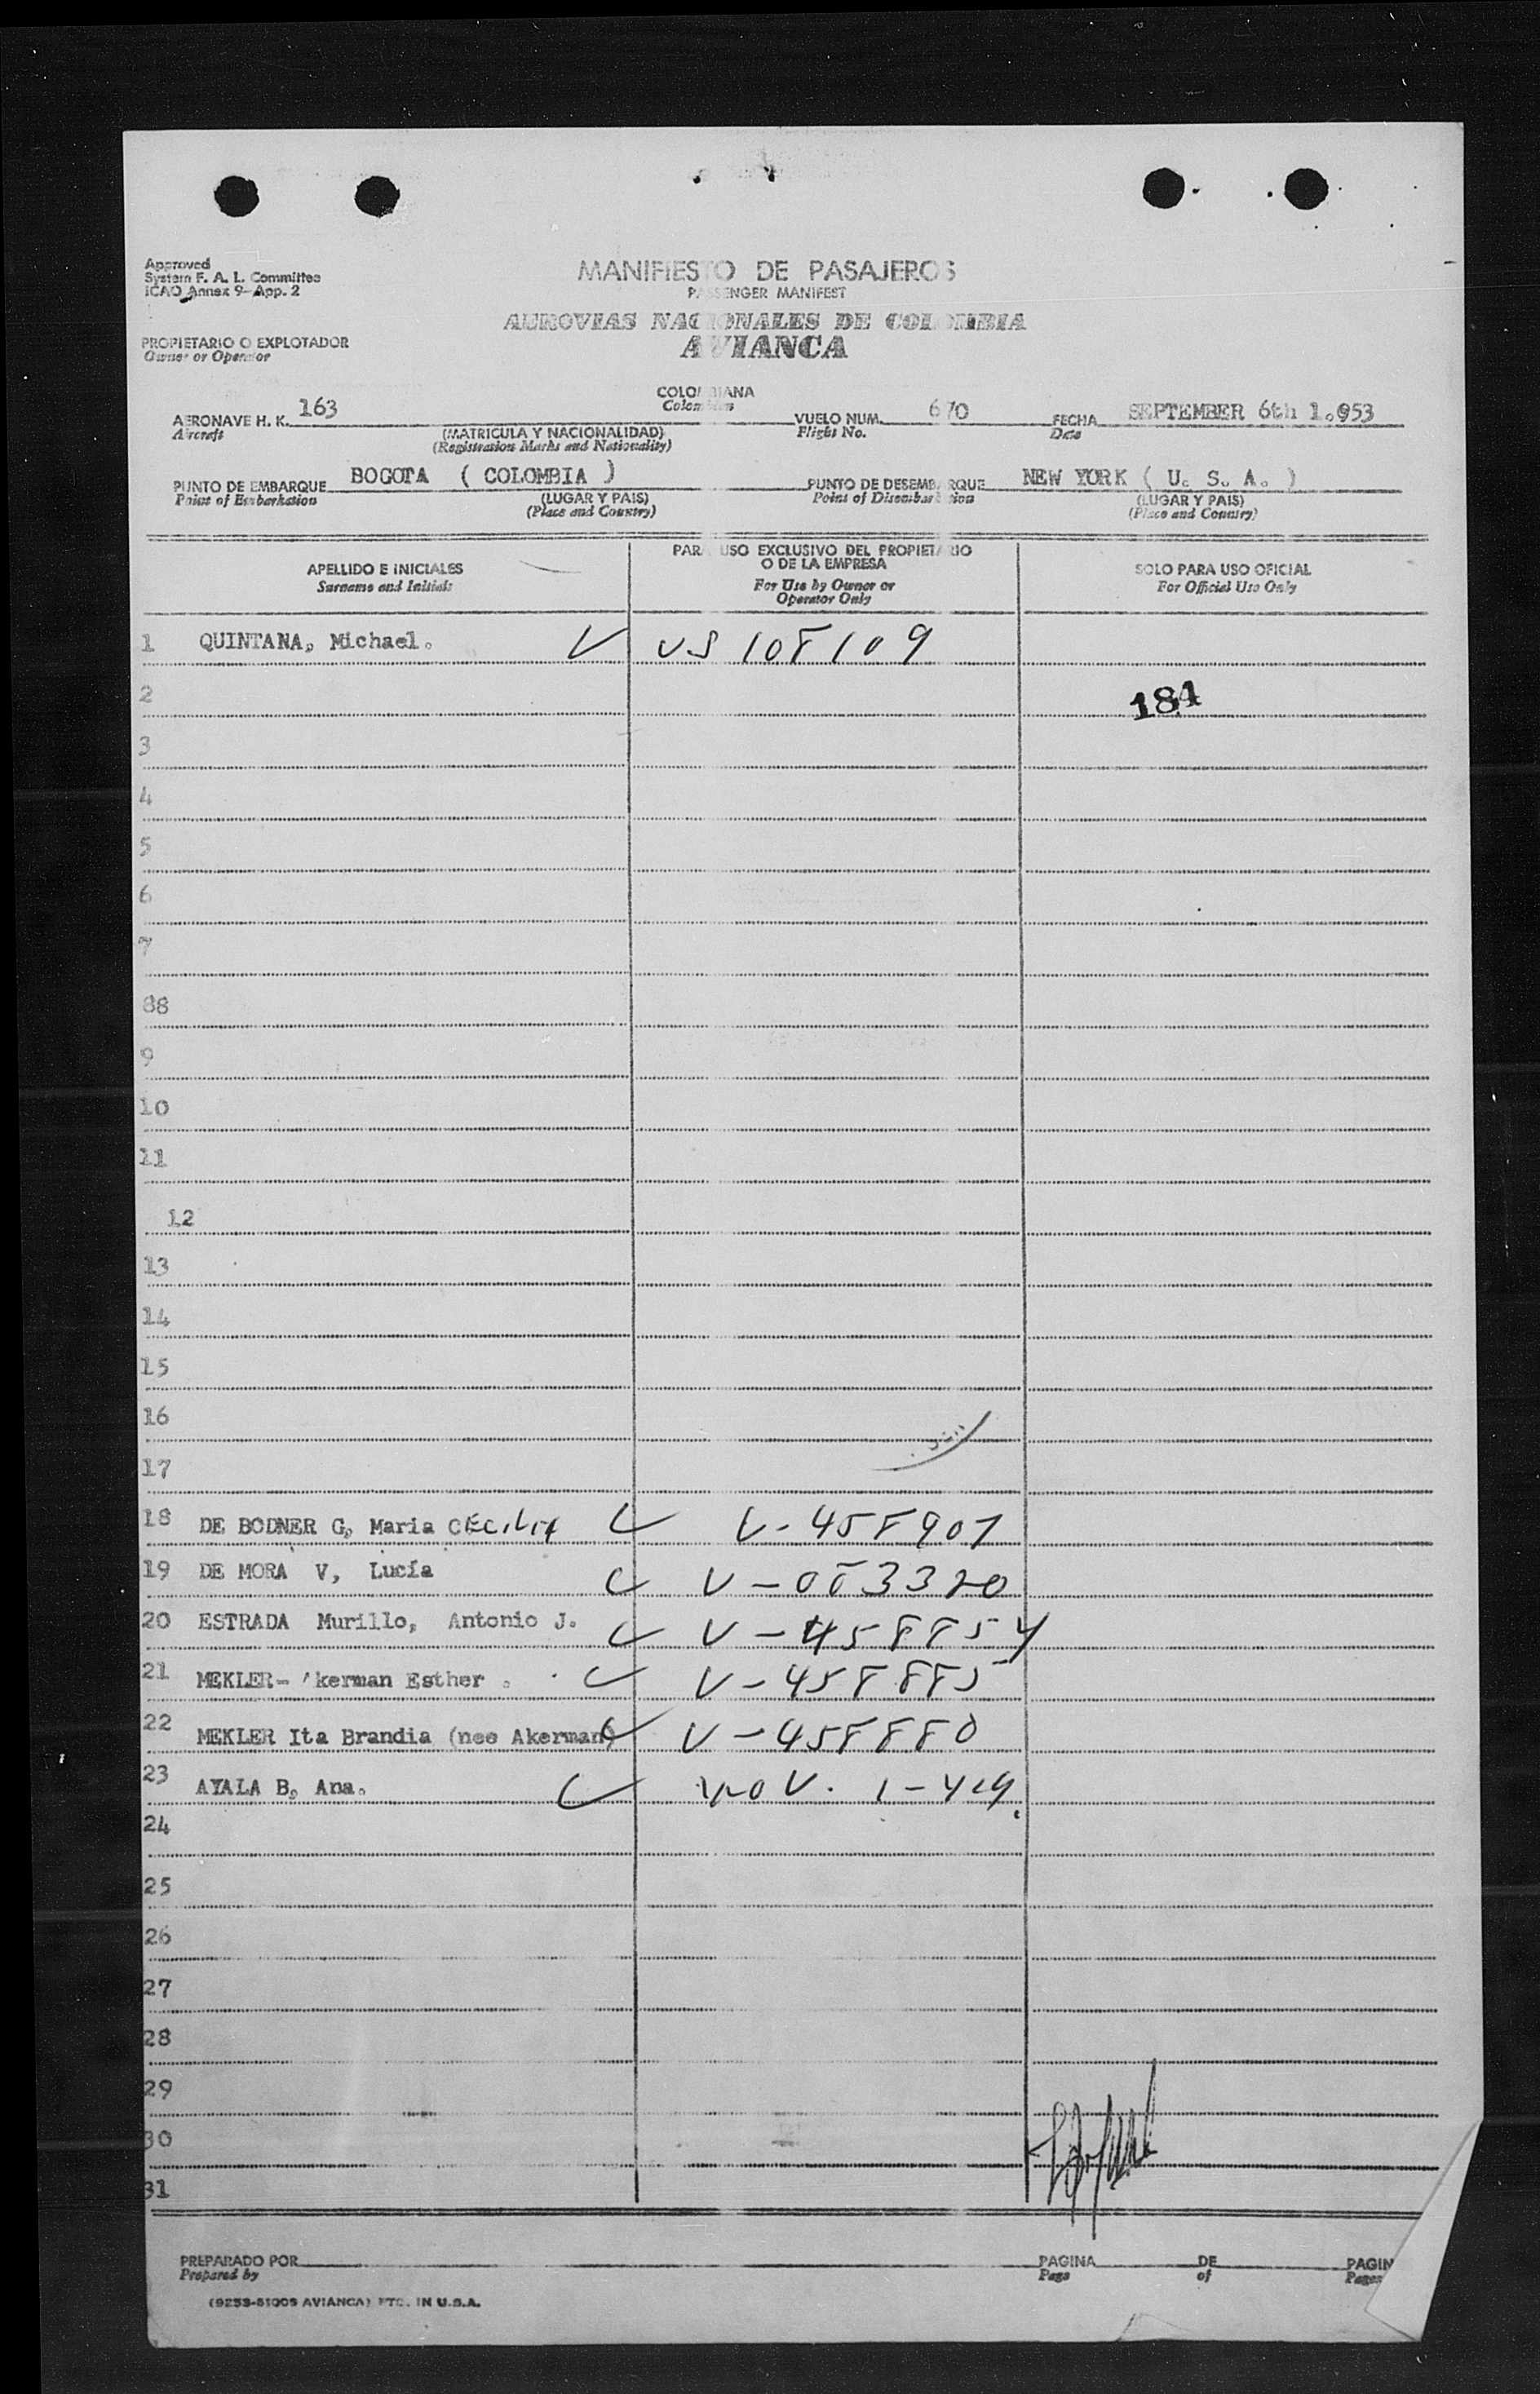 Approved
System F. A. L. Committee
ICAO Annex 9-App. 2
MANIFIESTO DE PASAJEROS
PASSENGER MANIFEST
AEROVIAS NACIONALES DE COLOMBIA
AVIANCA
PROPIETARIO O EXPLOTADOR
Owner or Operator
COLOMBIANA
Colombian
AERONAVE H. K. 163 VUELO NUM. 670 FECHA SEPTEMBER 6th 1.953
Aircraft (MATRICULA Y NACIONALIDAD) Flight No. Date
(Registration Marks and Nationality)
PUNTO DE EMBARQUE BOGOTA ( COLOMBIA ) PUNTO DE DESEMBARQUE NEW YORK ( U. S. A. )
Point of Embarkation (LUGAR Y PAIS) Point of Disembarkation (LUGAR Y PAIS)
(Place and Country) (Place and Country)
APELLIDO E INICIALES PARA USO EXCLUSIVO DEL PROPIETARIO SOLO PARA USO OFICIAL
Surname and Initials O DE LA EMPRESA For Official Use Only
For Use by Owner or
Operator Only
1 QUINTANA, Michael. US 108109
2 184
3
4
5
6
7
88
9
10
11
12
13
14
15
16
17
18 DE BODNER G, Maria CECILIA V-458907
19 DE MORA V, Lucía V-053320
20 ESTRADA Murillo, Antonio J. V-458854
21 MEKLER- kerman Esther . V-458885
22 MEKLER Ita Brandia (nee Akerman) V-458880
23 AYALA B, Ana.
24
25
26
27
28
29
30
31
PREPARADO POR PAGINA DE PAGIN
Prepared by Page of Pages
(9253-51005 AVIANCA) PTC. IN U.S.A.